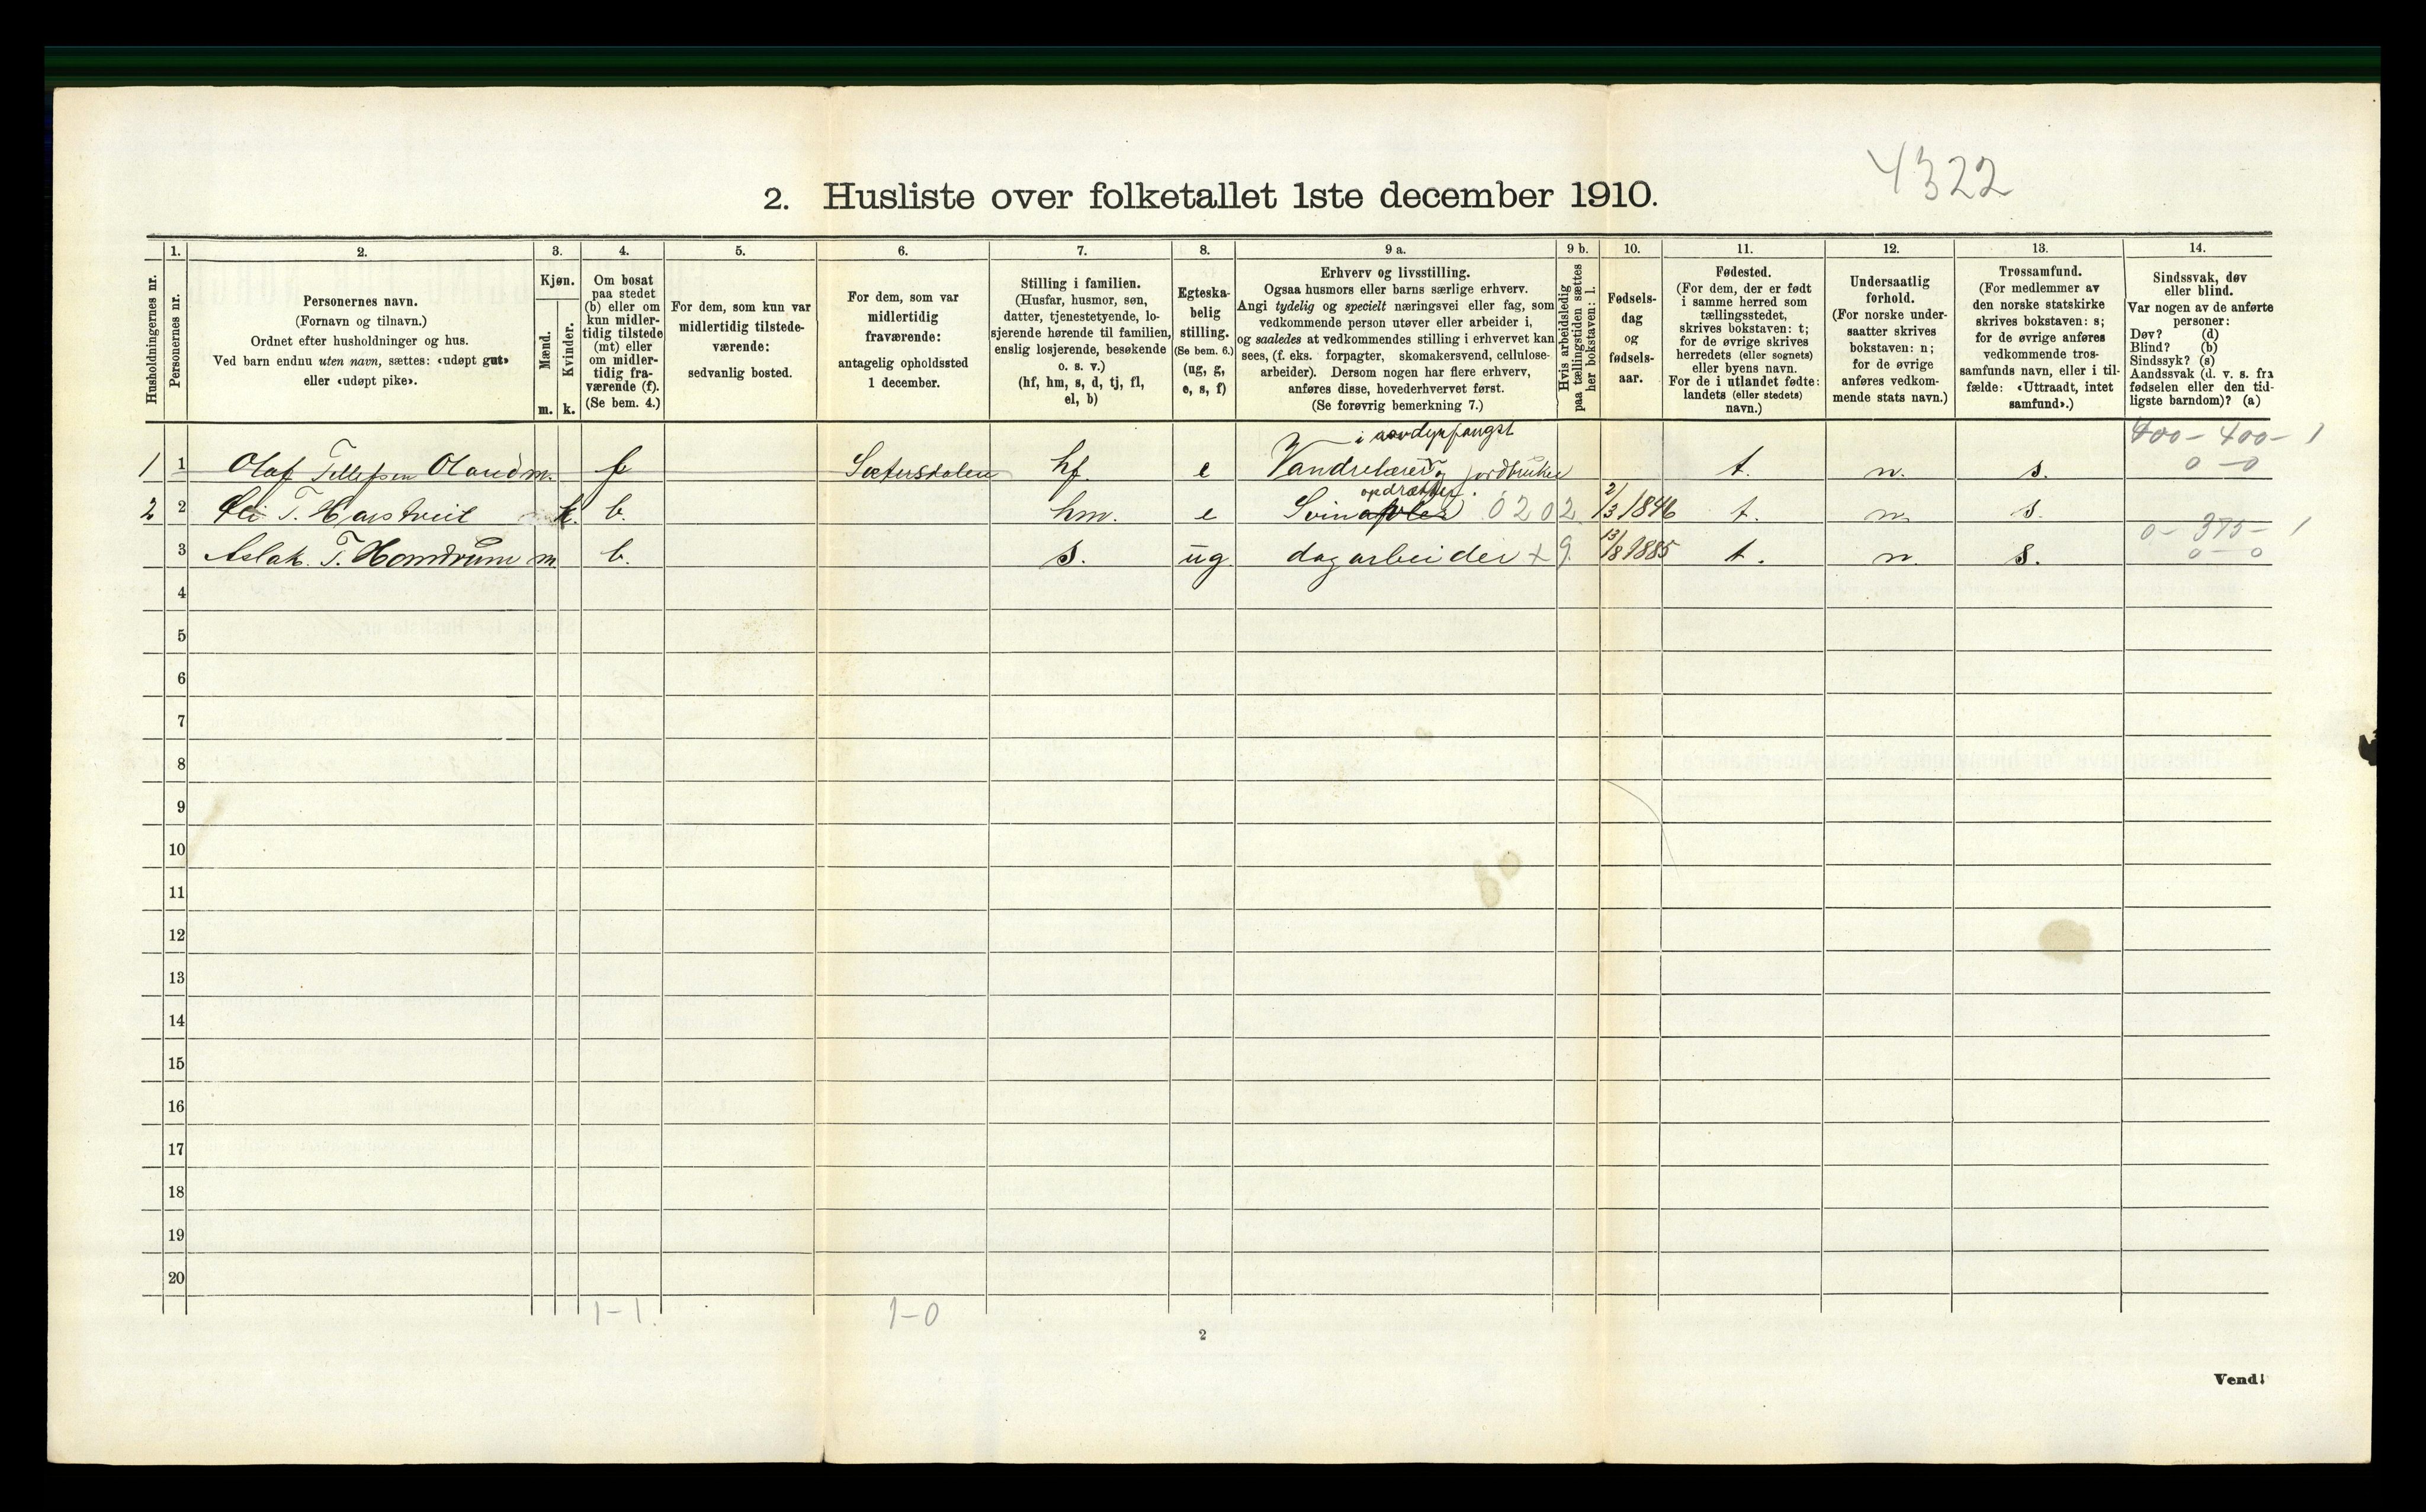 4322
2. Husliste over folketallet 1ste december 1910.
1. 2. 3. 4. 5. 6. 7. 8. 9 a. 9 b. 10. 11. 12. 13. 14.
Husholdningernes nr.
Personernes nr.
Personernes navn.
(Fornavn og tilnavn.)
Ordnet efter husholdninger og hus.
Ved barn endnu uten navn, sættes: «udøpt gut»
eller «udøpt pike».
Kjøn.
Mænd.
Kvinder.
m. k.
Om bosat
paa stedet
(b) eller om
kun midler-
tidig tilstede
(mt) eller
om midler-
tidig fra-
værende (f).
(Se bem. 4.)
For dem, som kun var
midlertidig tilstede-
værende:
sedvanlig bosted.
For dem, som var
midlertidig
fraværende:
antagelig opholdssted
1 december.
Stilling i familien.
(Husfar, husmor, søn,
datter, tjenestetyende, lo-
sjerende hørende til familien,
enslig losjerende, besøkende
o. s. v.)
(hf, hm, s, d, tj, fl,
el, b)
Egteska-
belig
stilling.
(Se bem. 6.)
(ug, g,
e, s, f)
Erhverv og livsstilling.
Ogsaa husmors eller barns særlige erhverv.
Angi tydelig og specielt næringsvei eller fag, som
vedkommende person utøver eller arbeider i,
og saaledes at vedkommendes stilling i erhvervet kan
sees, (f. eks. forpagter, skomakersvend, cellulose-
arbeider). Dersom nogen har flere erhverv,
anføres disse, hovederhvervet først.
(Se forøvrig bemerkning 7.)
Hvis arbeidsledig
paa tællingstiden sættes
her bokstaven: l.
Fødsels-
dag
og
fødsels-
aar.
Fødested.
(For dem, der er født
i samme herred som
tællingsstedet,
skrives bokstaven: t;
for de øvrige skrives
herredets (eller sognets)
eller byens navn.
For de i utlandet fødte:
landets (eller stedets)
navn.)
Undersaatlig
forhold.
(For norske under-
saatter skrives
bokstaven: n;
for de øvrige
anføres vedkom-
mende stats navn.)
Trossamfund.
(For medlemmer av
den norske statskirke
skrives bokstaven: s;
for de øvrige anføres
vedkommende tros-
samfunds navn, eller i til-
fælde: «Uttraadt, intet
samfund».)
Sindssvak, døv
eller blind.
Var nogen av de anførte
personer:
Døv? (d)
Blind? (b)
Sindssyk? (s)
Aandssvak (d. v. s. fra
fødselen eller den tid-
ligste barndom)? (a)
i rovdyrfangst 400 - 400 - 1
1 1 Olaf Tellefsen Oland m. f Sætersdalen hf. e Vandrelærer og jordbruker t. n. s. 0 - 0
opdrætter.
2 2 T. k. b. hm. e Svin 0202 2/3 1846 t. n s.
0 - 375 - 1
3 Aslak. T. Homdrum m b. s. ug. dagarbeider + 9. 13/8 1885 t. n. s. 0 - 0
4
5
6
7
8
9
10
11
12
13
14
15
16
17
18
19
20
1-1. 1-0
2
Vend!